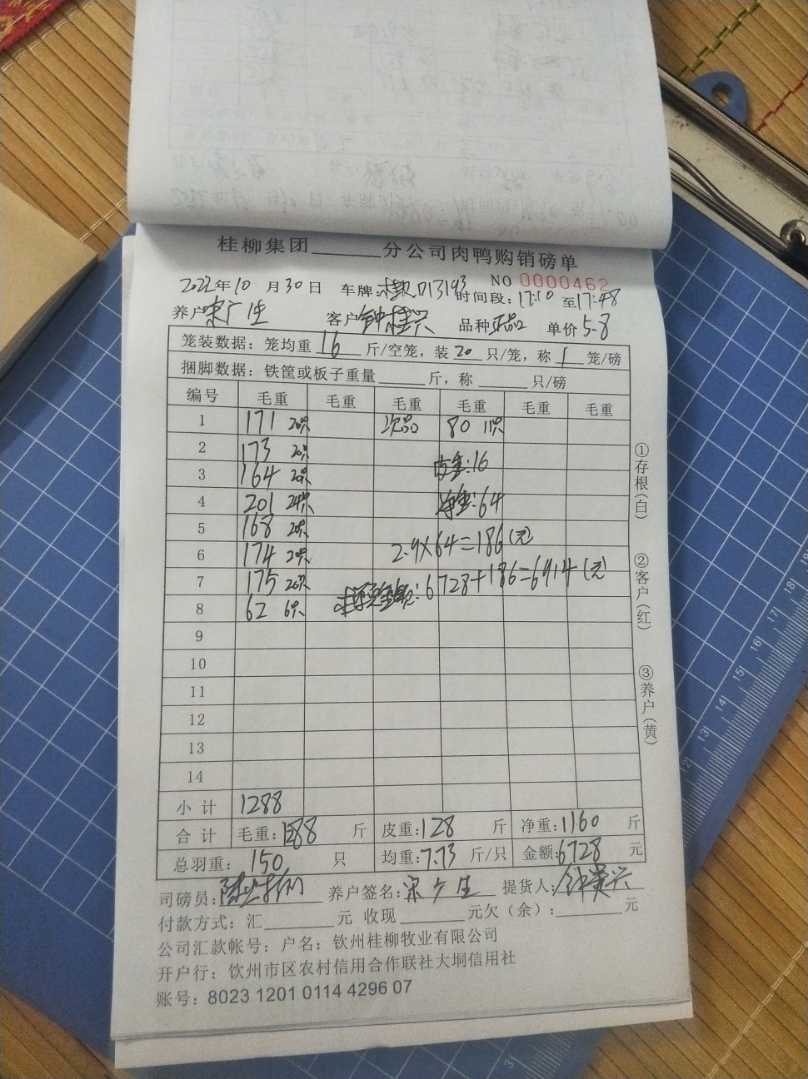 桂柳集团______分公司肉鸭购销磅单
NO 0000462
2022年10月30日 车牌: 时间段:17:10至17:48
养户宋广生 客户钟桂兴 品种正品 单价5.8
笼装数据:笼均重16斤/空笼,装20只/笼,称1笼/磅
捆脚数据:铁筐或板子重量______斤,称______只/磅
编号 毛重 毛重 毛重 毛重 毛重 毛重
1 171 20只 次品 80 11只
2 173 20只
皮重:16
3 164 20只
净重:64
4 201 24只
5 168 20只
2.9×64=186(元)
6 174 20只
7 175 20只
总金额:6728+186=6914(元)
8 62 6只
9
10
11
12
13
14
小计 1288
合计 毛重:1288斤 皮重:128斤 净重:1160斤
总羽重:150只 均重:7.73斤/只 金额:6728元
司磅员: 养户签名:宋广生 提货人:
付款方式:汇______元 收现______元欠(余):______元
公司汇款帐号:户名:钦州桂柳牧业有限公司
开户行:钦州市区农村信用合作联社大垌信用社
账号:8023 1201 0114 4296 07
①存根(白)
②客户(红)
③养户(黄)
12 13 14 15 16 17 18